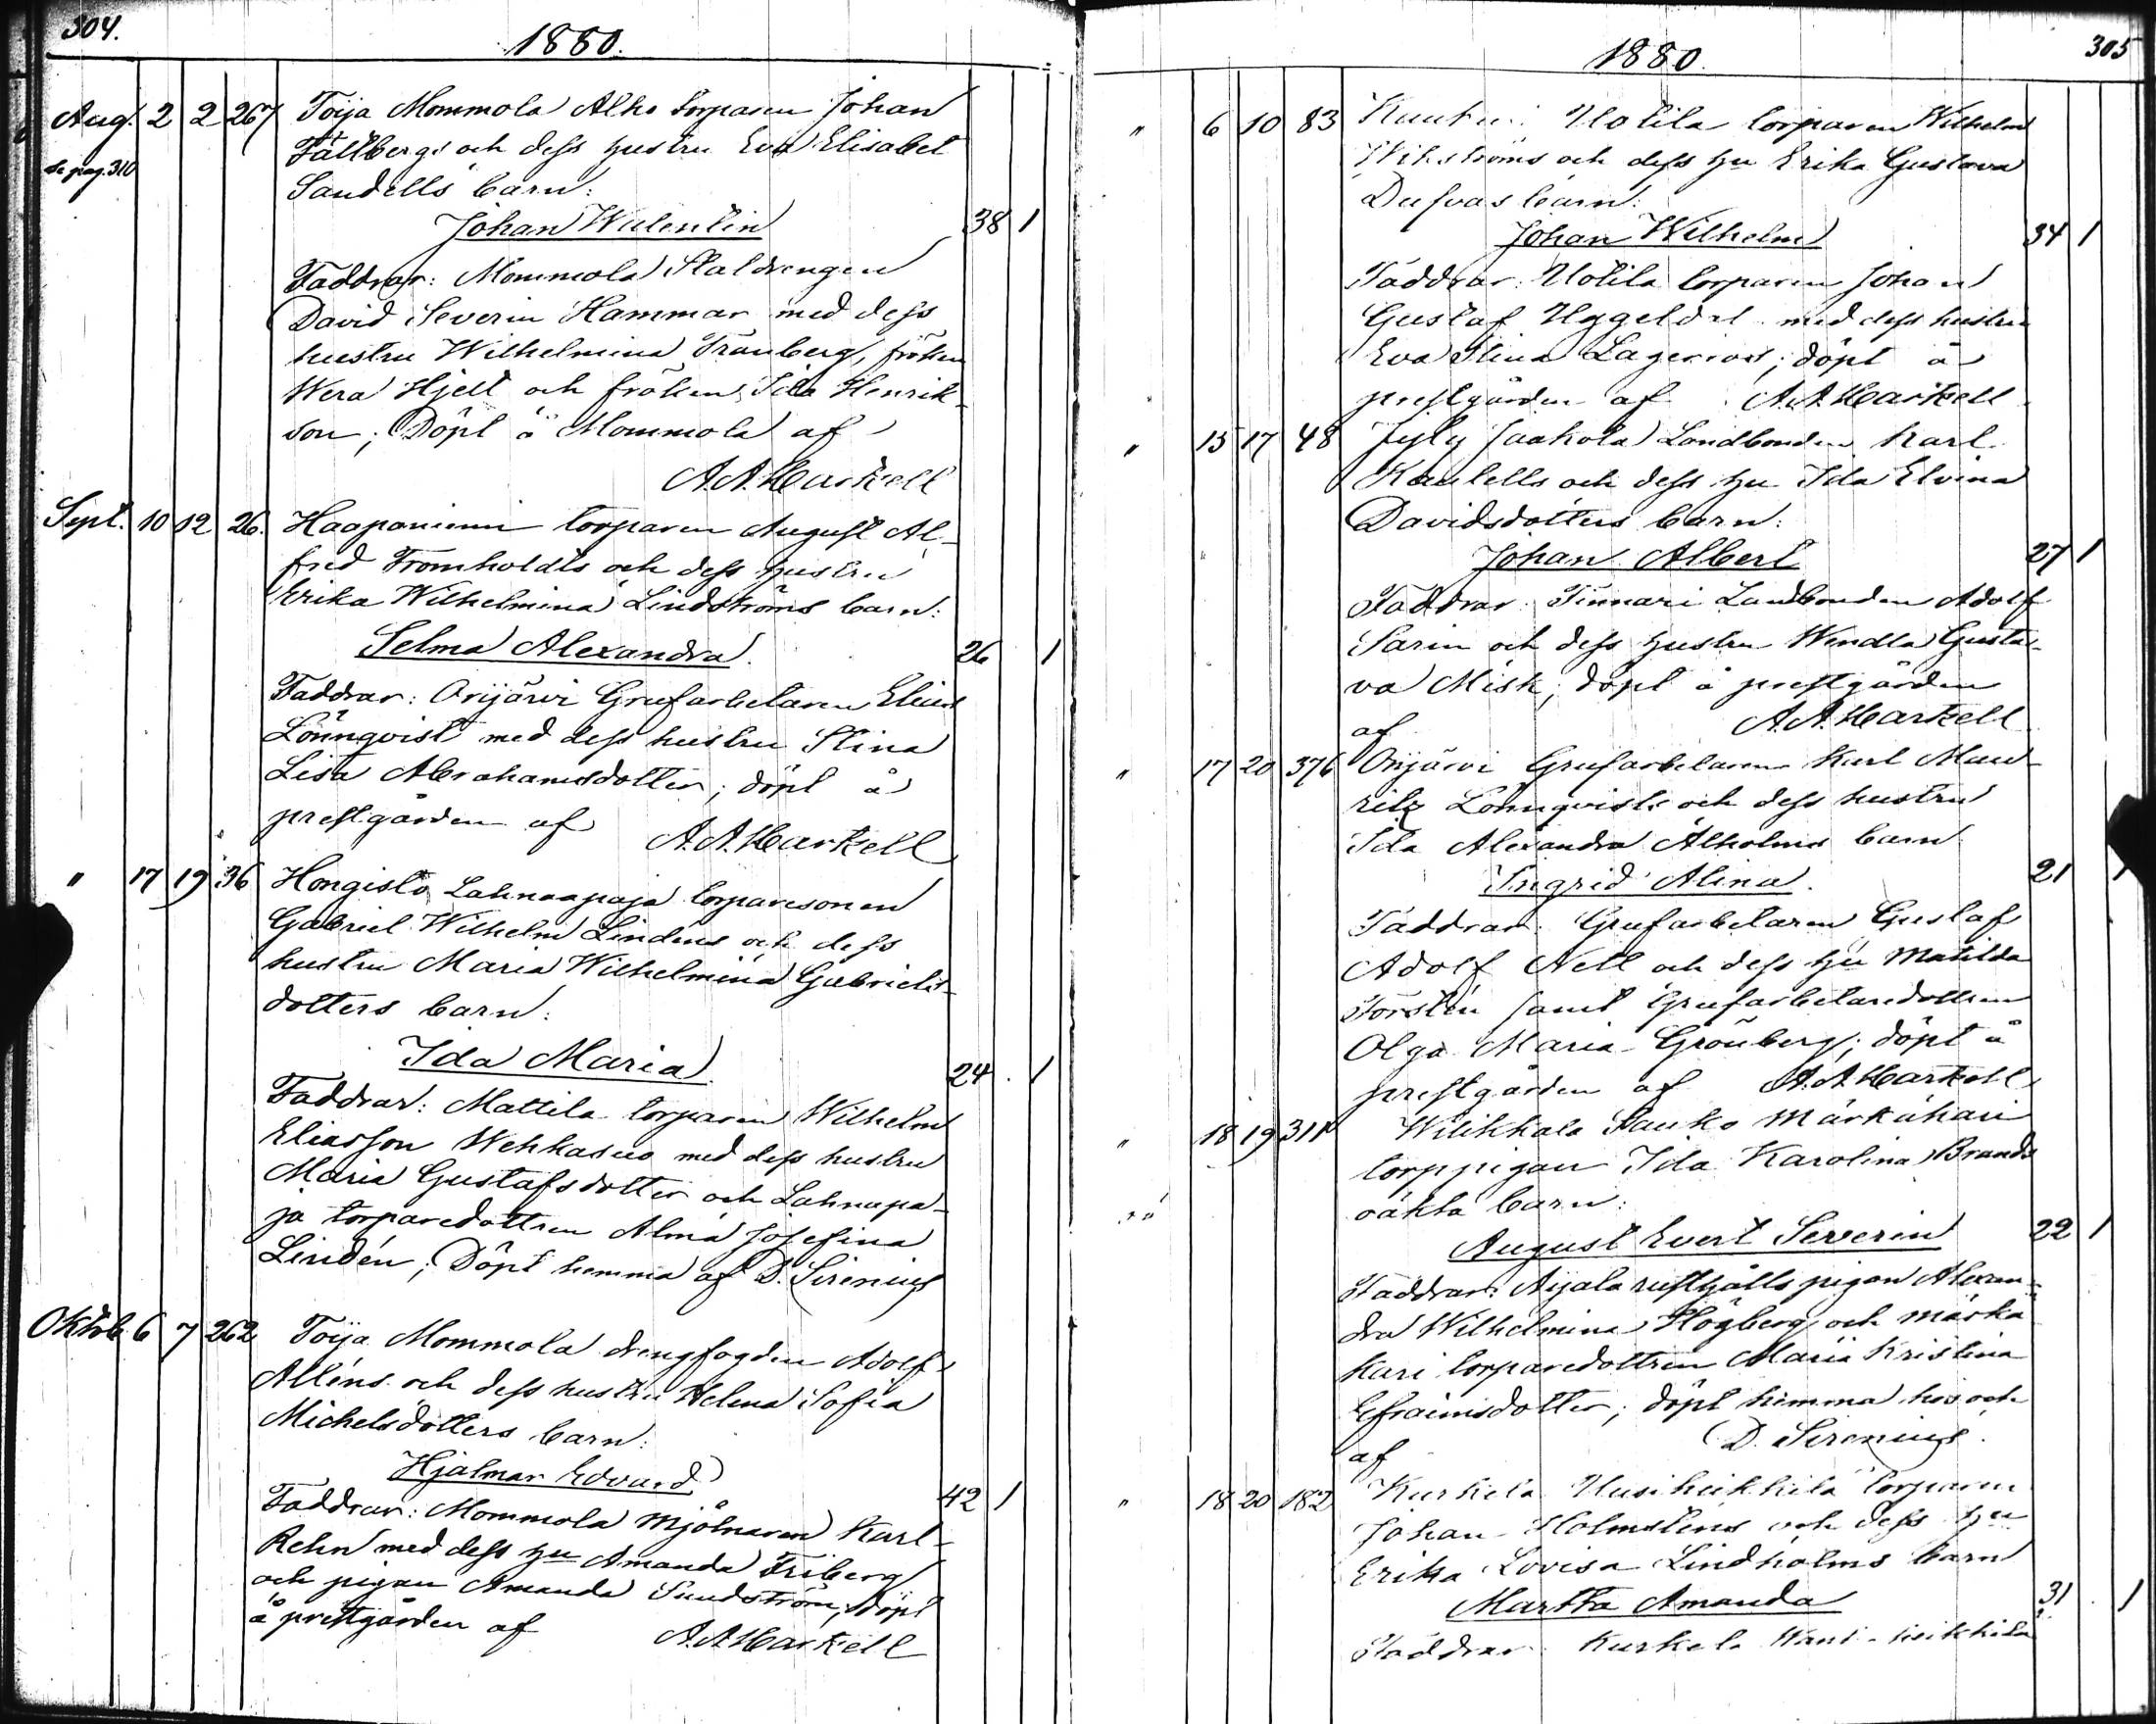 304.
1880.
Aug. 2 2 267 Toija Mommola Alho torparen Johan
se pag. 310 Fällbergs och dess hustru Eva Elisabet
Sandells barn:
Johan Walentin 38 1
Faddrar: Mommola Staldrengen
David Severin Hammar med dess
hustru Wilhelmina Tranberg, fröken
Wera Hjelt och fröken Ida Henrik-
son; Döpt å Mommola af
A.A. Markell
Sept. 10 12 26. Haapaniemi torparen August Al-
fred Fromholdts och dess hustru
Erika Wilhelmina Lindströms barn:
Selma Alexandra. 26 1
Faddrar: Orijärvi Grufarbetaren Elias
Lönnqvist med dess hustru Stina
Lisa Abrahamsdotter; döpt å
prestgården af A.A. Markell
" 17 19 36 Hongisto Lahnaapaja torparesonen
Gabriel Wilhelm Lindéns och dess
hustru Maria Wilhelmina Gabriels-
dotters barn:
Ida Maria 24 1
Faddrar: Mattila torparen Wilhelm
Eliasson Wehkasuo med dess hustru
Maria Gustafsdotter och Lahnapa-
ja torparedottren Alma Josefina
Lindén; Döpt hemma af D. Sirenius
Oktob. 6 7 262 Toija Mommola drengfogden Adolf
Alléns och dess hustru Helena Sofia
Michelsdotters barn:
Hjalmar Edvard 42 1
Faddrar: Mommola mjölnaren Karl
Rehn med dess hu Amanda Friberg
och pigan Amanda Sundström; döpt
å prestgården af A.A. Markell
1880. 305
" 6 10 83 Uotila torparen Wilhelm
Wikströms och dess hu Erika Gustava
Dufvas barn:
Johan Wilhelm 34 1
Faddrar: Uotila torparen Johan
Gustaf med dess hustru
Eva Stina Lagerroos; döpt å
prestgården af A.A. Markell
" 15 17 48 Jyly Jaakola Landbonden Karl
Kaulells och dess hu Ida Elvina
Davidsdotters barn:
Johan Albert 27 1
Faddrar: Tinnari Landbonden Adolf
Sarin och dess hustru Wendla Gusta-
va Misk; döpt å prestgården
af A.A. Markell
" 17 20 376 Orijärvi Grufarbetaren Karl Mau-
ritz Lönnqvists och dess hustru
Ida Alexandra Alholms barn
Ingrid Alina. 21 1
Faddrar: Grufarbetaren Gustaf
Adolf Nell och dess hu Matilda
Forstén samt Grufarbetaredottren
Olga Maria Grönberg; döpt å
prestgården af A.A. Markell
" 18 19 311 Wilikkala Sauko Märkähari
torppigan Ida Karolina Brands
oäkta barn:
August Evert Severin 22 1
Faddrar: Aijala rusthålls pigan Alexan-
dra Wilhelmina Högberg och märkä
hari torparedottren Maria Kristina
Efraimsdotter; döpt hemma hos och
af D. Sirenius.
" 18 20 182 Kurkela Uusiheikkilä torparen
Johan Holmsténs och dess hu
Erika Lovisa Lindholms barn
Martha Amanda 31 1
Faddrar: Kurkela heikkilä